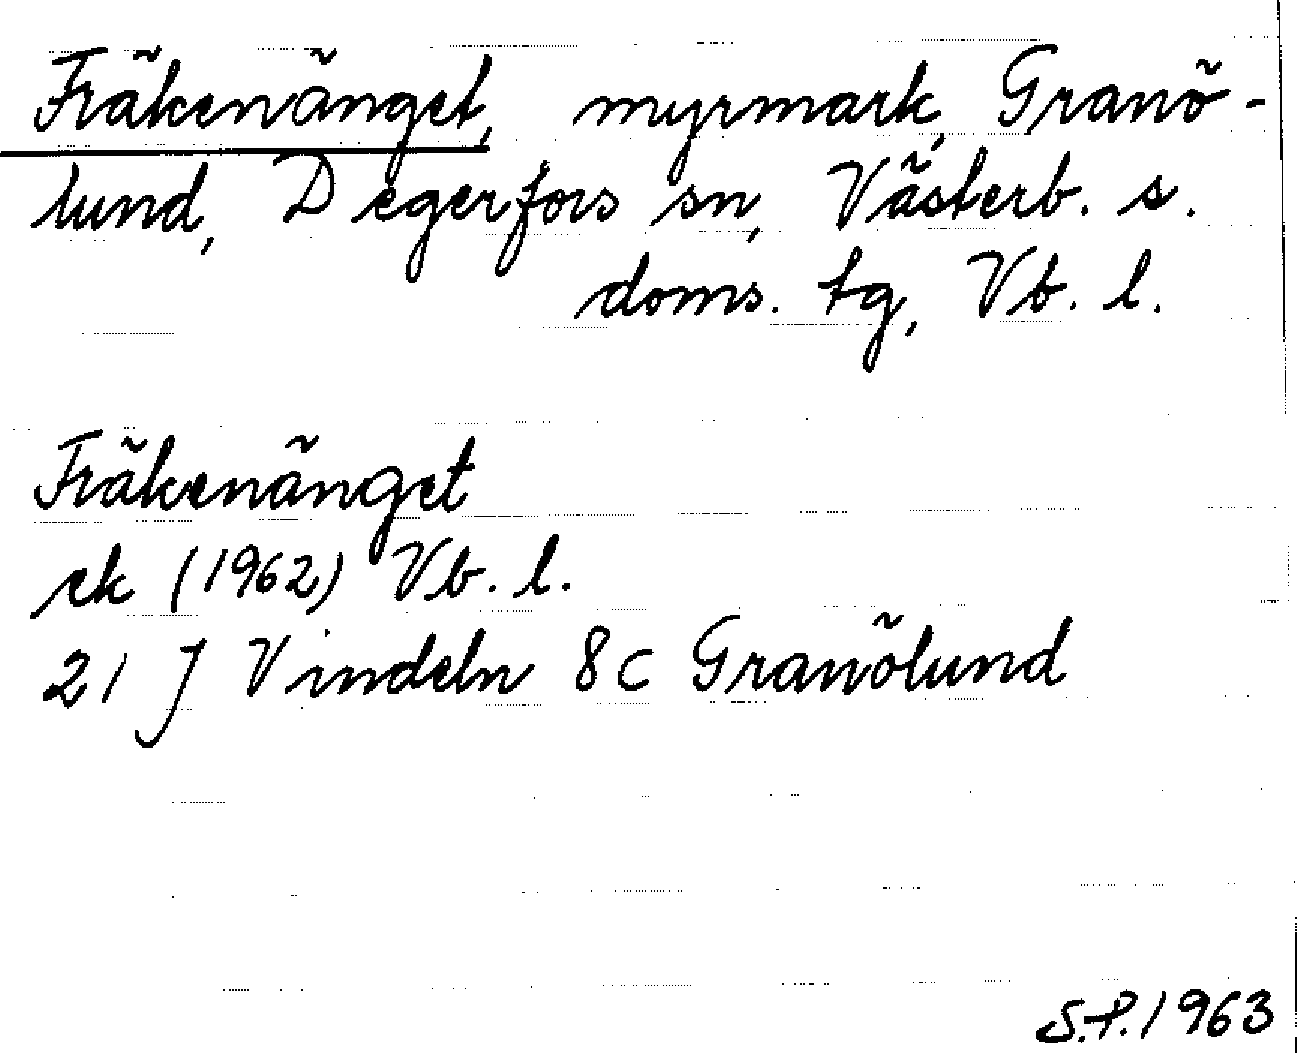 Fräkenänget, myrmark, Granö-
lund, Degerfors sn, Västerb. s.
doms. tg, Vb. l.
Fräkenänget
ek (1962) Vb. l.
21 J Vindeln 8c Granölund
S.P. 1963